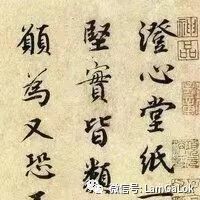 澄心堂紙一
堅實皆類
願為又恐
神品
微信号: LamGaLok